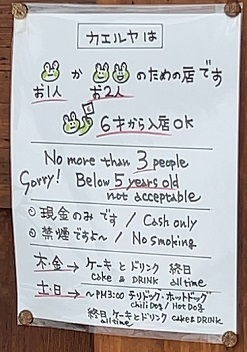 カエルヤは
か のための店です
お1人 お2人
6才から入店OK
No more than 3 people
Sorry! Below 5 years old
not acceptable
現金のみです / Cash only
禁煙ですよ～ / No smoking
木・金→ケーキとドリンク 終日
cake & DRINK all time
土・日→～PM3:00 チリドック・ホットドック
chili Dog / Hot Dog
終日 ケーキとドリンク cake & DRINK
all time